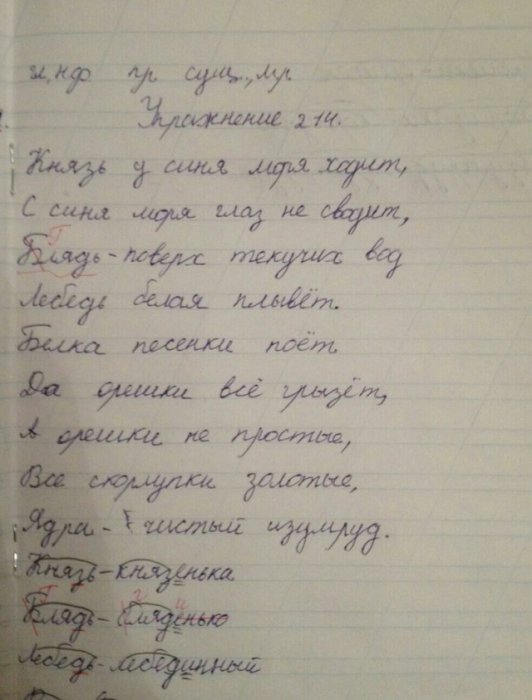 и, нф пр сущ., мр.
Упражнение 214.
Князь у синя моря ходит,
С синя моря глаз не сводит,
Блядь - поверх текучих вод
Лебедь белая плывёт.
Белка песенки поёт
Да орешки всё грызёт,
А орешки не простые,
Все скорлупки золотые,
Ядра - чистый изумруд.
Князь - князенька
Блядь - бляденько
Лебедь - лебединный